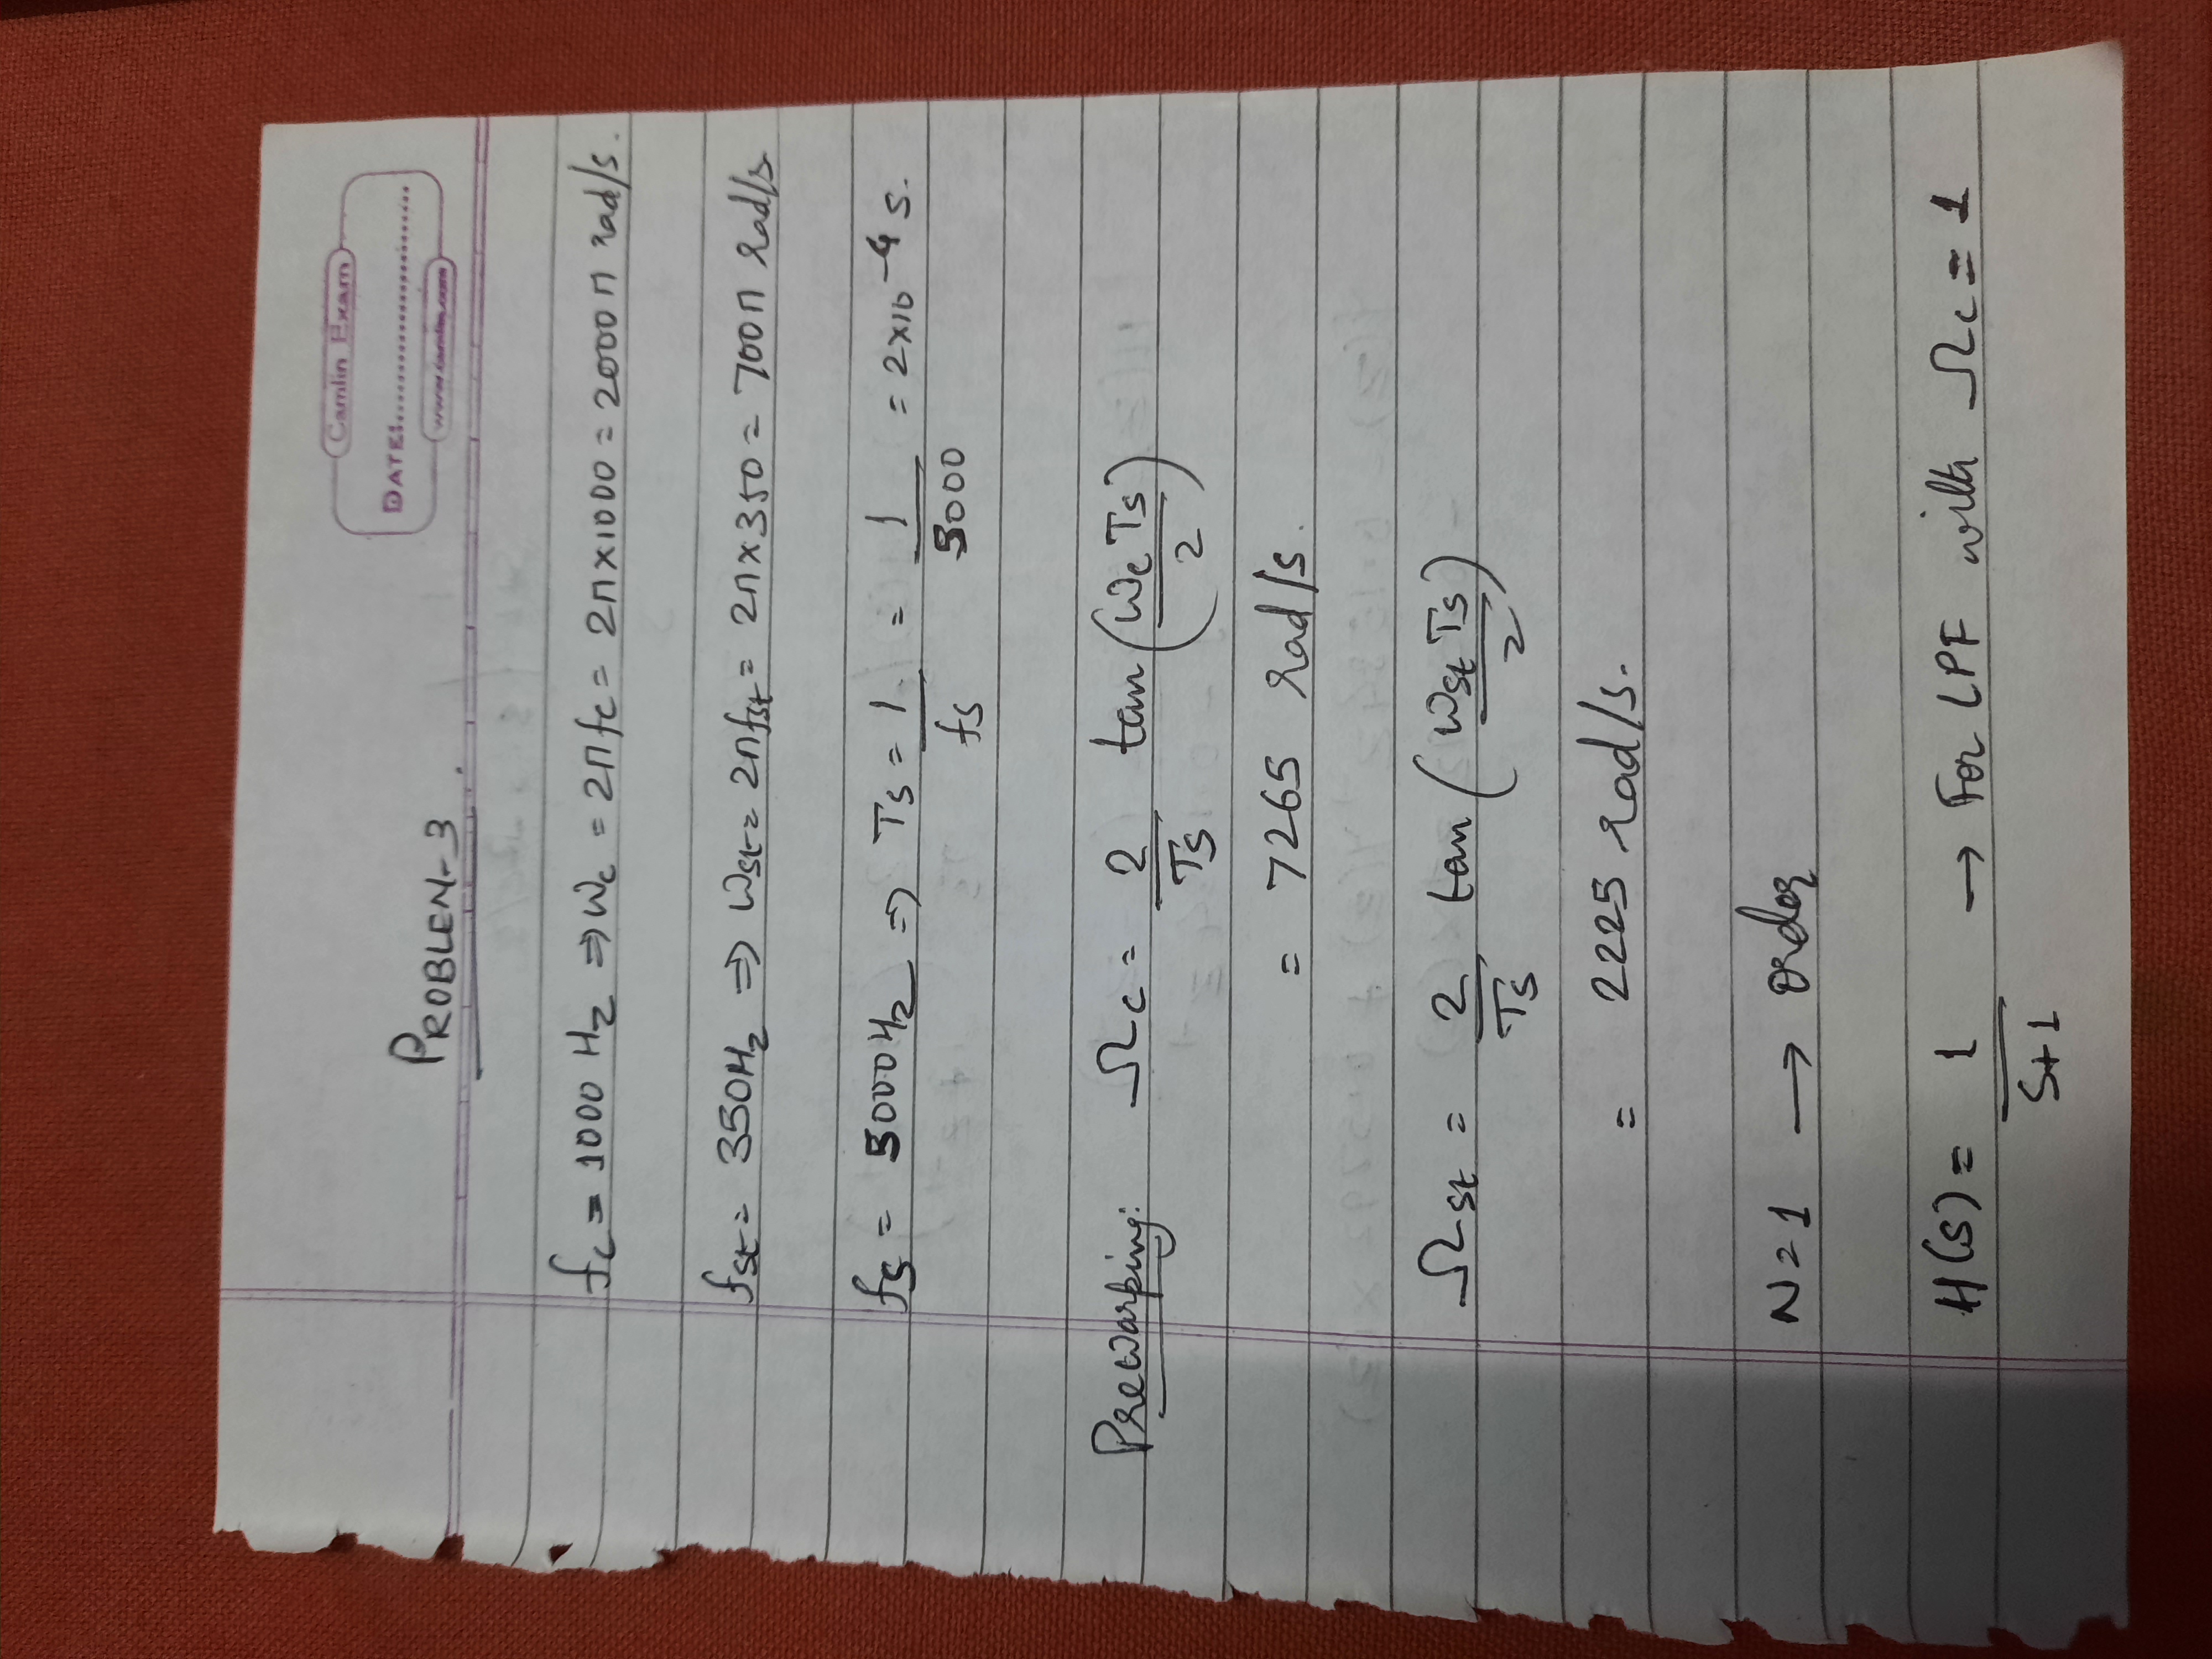 Camlin Exam
DATE:
www.camlin.com
PROBLEM-3.
fc = 1000 Hz ⇒ Wc = 2πfc = 2π×1000 = 2000π rad/s.
fst = 350Hz ⇒ Wst = 2πfst = 2π×350 = 700π rad/s
fs = 5000Hz ⇒ Ts = 1/fs = 1/5000 = 2×10^-4 s.
Prewarping: Ωc = 2/Ts tan(WcTs/2)
= 7265 rad/s.
Ωst = 2/Ts tan(WstTs/2)
= 2225 rad/s.
N=1 → order
H(s) = 1/(S+1) → For LPF with Ωc = 1